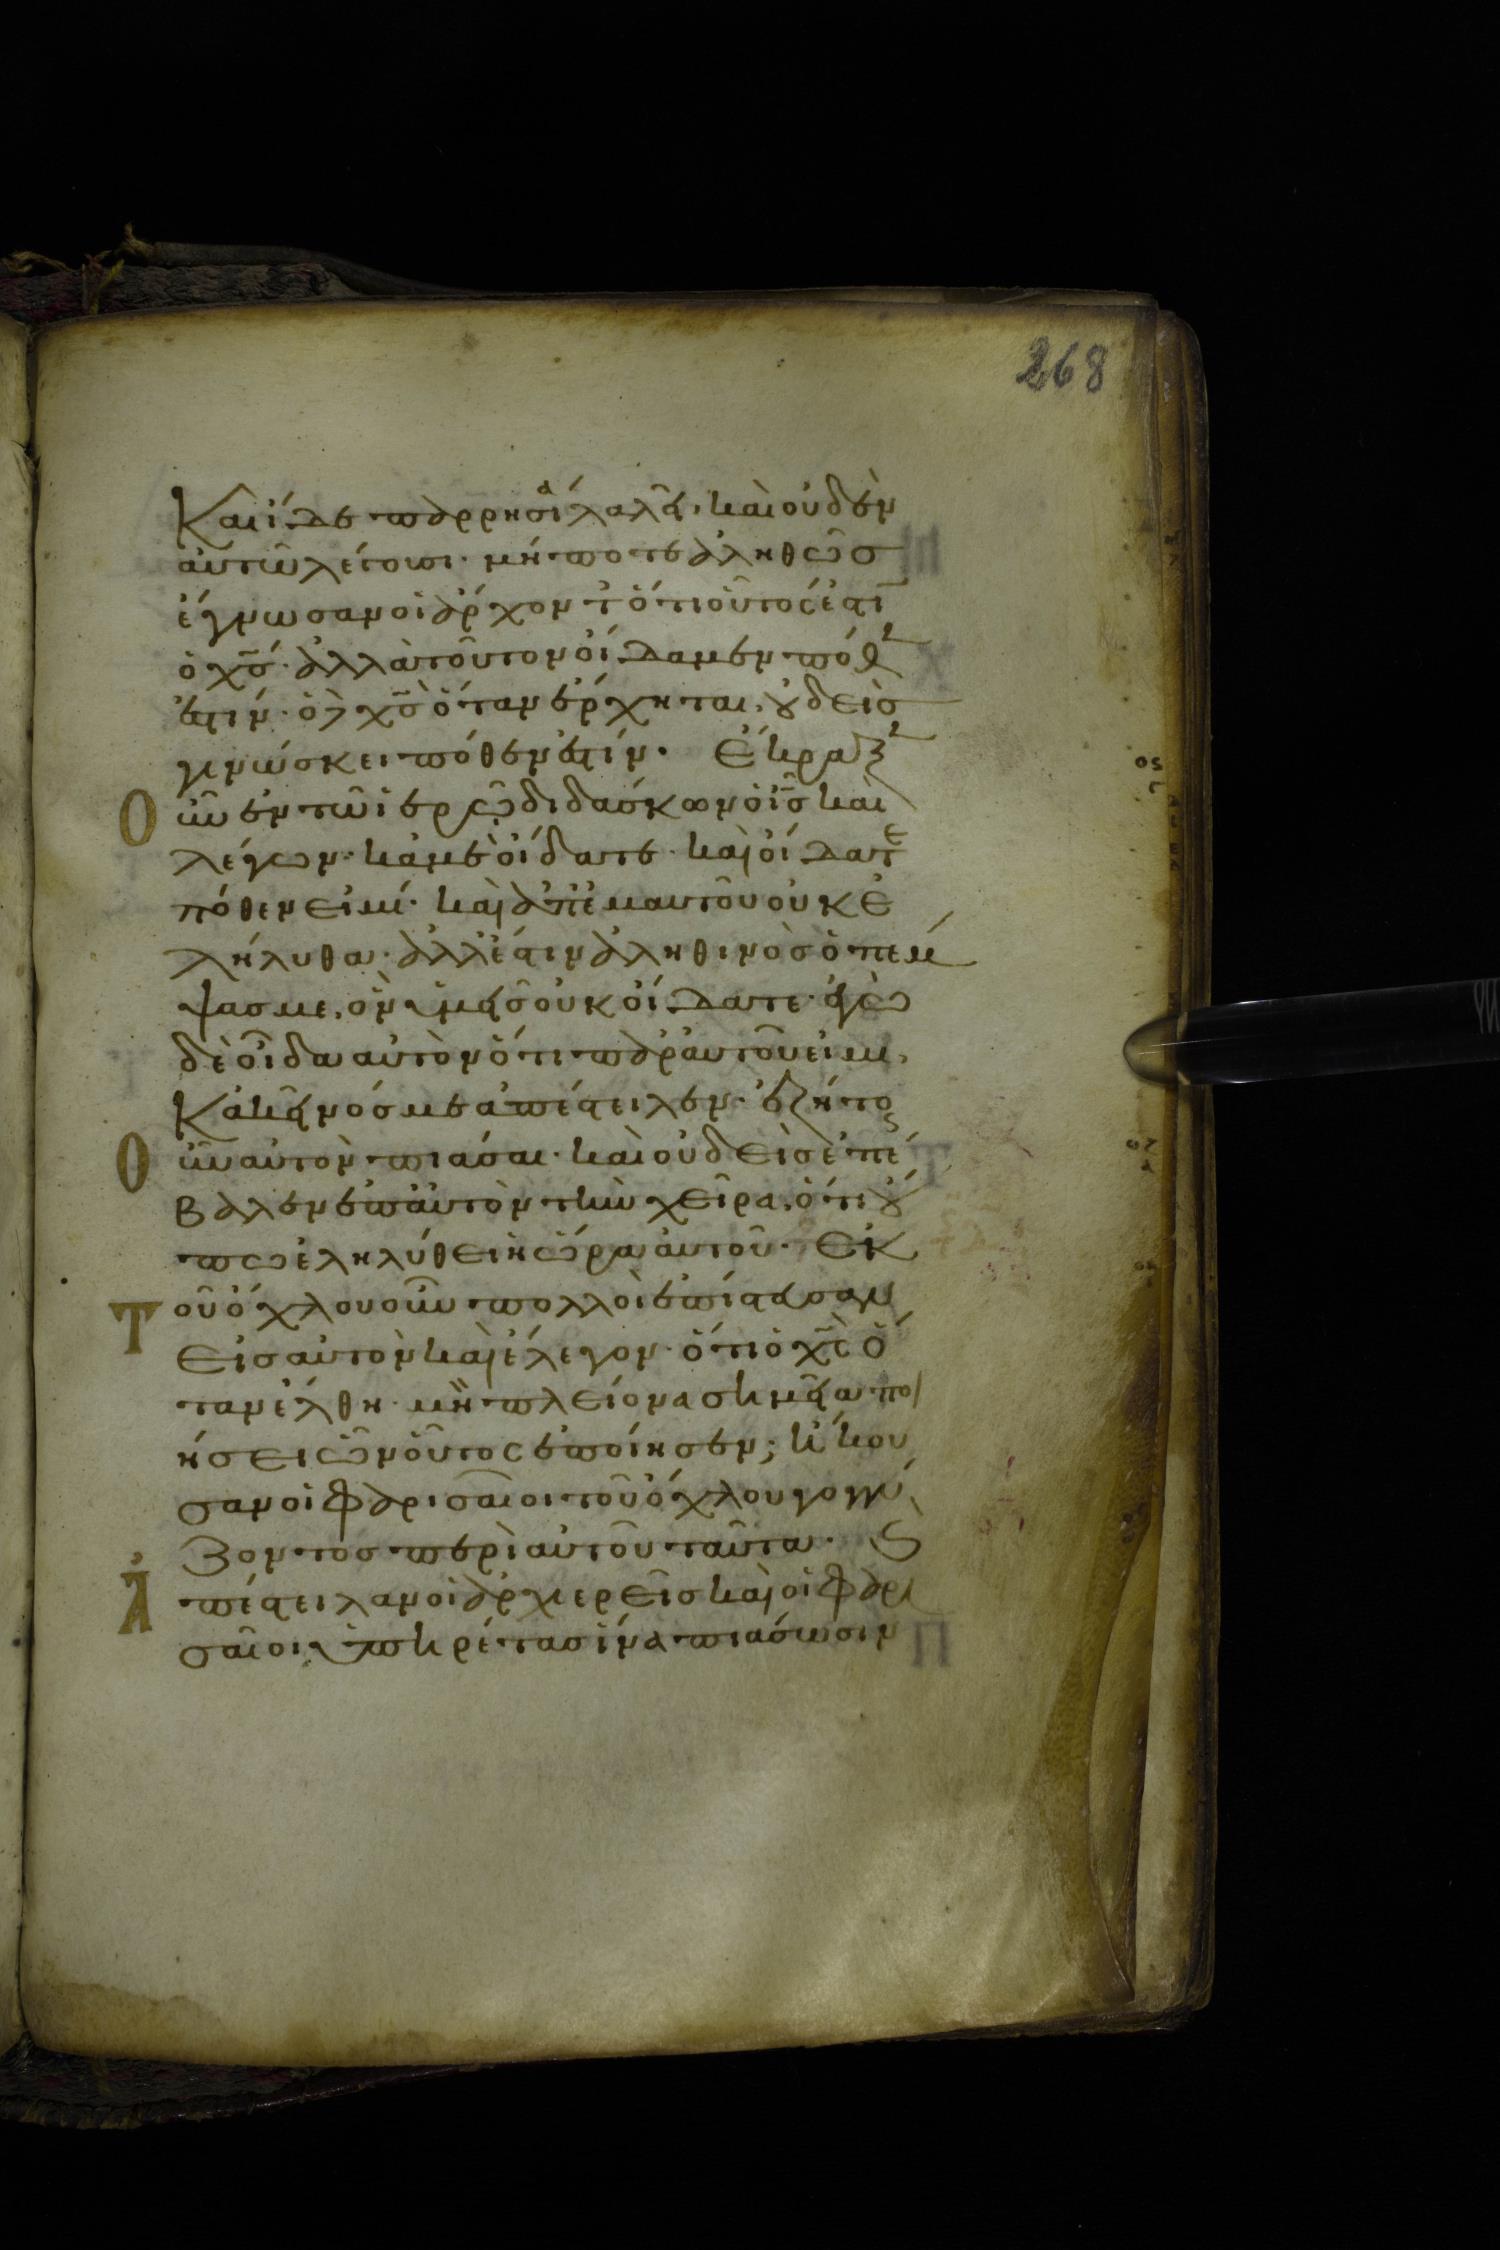 268
Καὶ ἴδε παρρησίᾳ λαλεῖ· καὶ οὐδὲν
αυτῶ λέγουσι· μή ποτε ἀληθῶσ
ἔγνωσαν οἱ ἄρχοντ ὅτι οὗτος ἐστῖ
ὁ χσ· ἀλλὰ τοῦτον οἴδαμεν πόθ
ἐστίν· ὁ δὲ χσ ὅταν ἔρχηται, οὐδεὶσ
γινώσκει πόθεν ἐστίν· Ἔκραξ
Ο οὖν ἐν τῶ ἱερῶ διδάσκων ὁ ισ καὶ
λέγων· κἀμὲ οἴδατε· καὶ οἴδατε
πόθεν εἰμί· καὶ ἀπ ἐμαυτοῦ οὐκ ἐ
λήλυθα· ἀλλ ἔστιν ἀληθινὸσ ὁ πέμ
ψασ με, ὃν ὑμεῖσ οὐκ οἴδατε· ἐγὼ
δὲ οἶδα αὐτὸν ὅτι παρ αυτοῦ εἰμι,
Κἀκεῖνός με ἀπέστειλεν· ἐζήτο
Ο υν αὐτὸν πιάσαι· καὶ οὐδεὶσ ἐπέ
βαλεν ἐπ αὐτὸν τὴν χεῖρα, ὅτι οὔ
πω ἐληλύθει ἡ ὥρα αὐτοῦ· Ἐκ
Τ οῦ ὄχλου οὖν πολλοὶ ἐπίστευσαν
εἰσ αὐτὸν καὶ ἔλεγον· ὅτι ὁ χσ ὅ
ταν ἔλθη· μὴ πλείονα σημεῖα ποι
ήσει ὧν οὗτος ἐποίησεν; ἤκου
σαν οἱ φαρισαῖοι τοῦ ὄχλου γογγύ
ζοντοσ περὶ αὐτοῦ ταῦτα· καὶ
Ἀ πέστειλαν οἱ ἀρχιερεῖσ καὶ οἱ φαρι
σαῖοι ὑπηρέτασ ἵνα πιάσωσιν